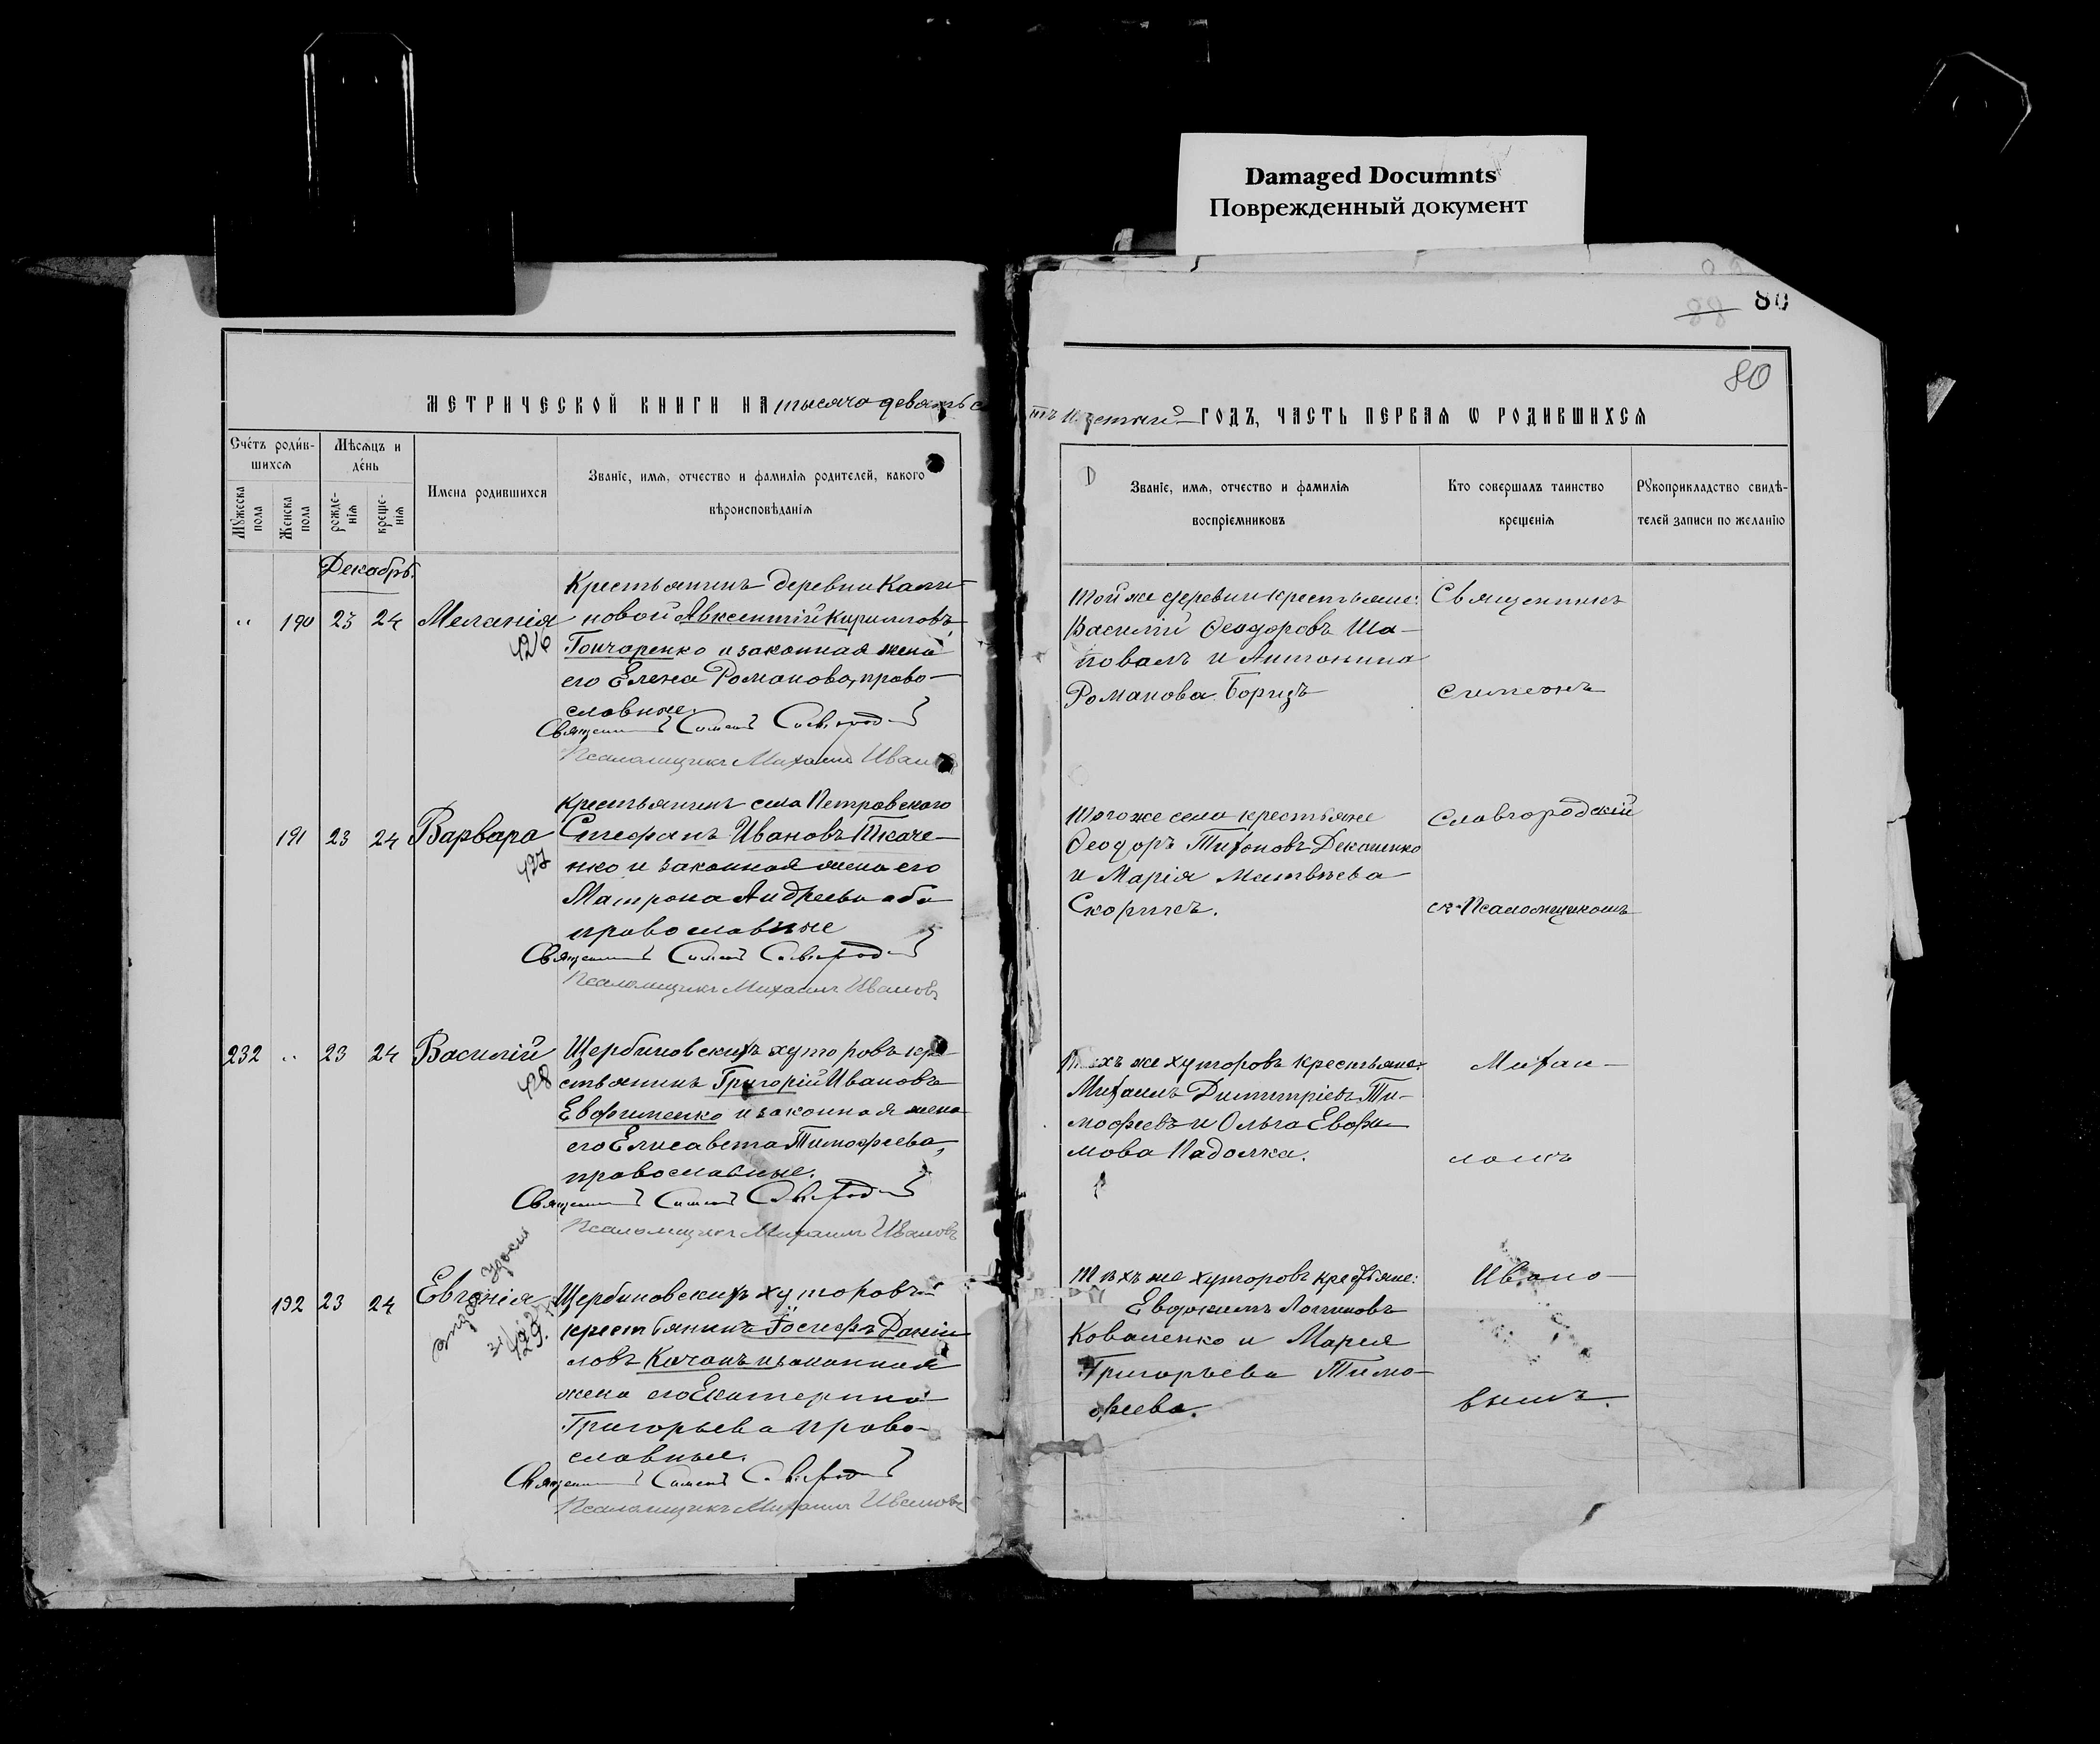 Damaged Documnts
Поврежденный документ
88 80
80
МЕТРИЧЕСКОЙ КНИГИ НА тысяча девятьс
ГОДЪ, ЧАСТЬ ПЕРВАЯ Ѡ РОДИВШИХСЯ
Счетъ родив-
шихся
Мѣсяцъ и
день
Мужеска пола
Женска пола
рожде-
нія
креще-
нія
Имена родившихся
Званіе, имя, отчество и фамилія родителей, какого
вѣроисповѣданія
Званіе, имя, отчество и фамилія
воспріемниковъ
Кто совершалъ таинство
крещенія
Рукоприкладство свидѣ-
телей записи по желанію
Декабрь.
" 190 23 24 Меланія
426
Крестьянинъ деревни Кали-
новой Авксентій Кирилловъ
Гончаренко и законная жена
его Елена Романова, право-
славные.
Священникъ Симеонъ Славгородскій
Псаломщикъ Михаилъ Ивановъ
Той же деревни крестьяне:
Василій Ѳеодоровъ Ша-
повалъ и Антонина
Романова Борицъ
Священникъ
Симеонъ
191 23 24 Варвара
427
Крестьянинъ села Петровского
Стефанъ Ивановъ Ткаче-
нко и законная жена его
Матрона Андреева оба
православные
Священникъ Симеонъ Славгородскій
Псаломщикъ Михаилъ Ивановъ
Того же села крестьяне
Ѳеодоръ Тихоновъ
и Марія Матвѣева
Скорикъ.
Славгородскій
съ Псаломщикомъ
232 " 23 24 Василій
428
Щербиновскихъ хуторовъ кре-
стьянинъ Григорій Ивановъ
Евфименко и законная жена
его Елисавета Тимофеева,
православные.
Священникъ Симеонъ Славгородскій
Псаломщикъ Михаилъ Ивановъ
Тѣхъ же хуторовъ крестьяне:
Михаилъ Димитріевъ Ти-
мофеевъ и Ольга Евфи-
мова Падолка.
Михаи-
ломъ
192 23 24 Евгенія
429.
Щербиновскихъ хуторовъ
крестьянинъ Іосифъ Даніи-
ловъ Качанъ и законная
жена его Екатерина
Григорьева право-
славные.
Священникъ Симеонъ Славгородскій
Псаломщикъ Михаилъ Ивановъ
Тѣхъ же хуторовъ крестьяне:
Евдокимъ Логиновъ
Коваленко и Марія
Григорьева Тимо-
феева.
Ивано-
вымъ.